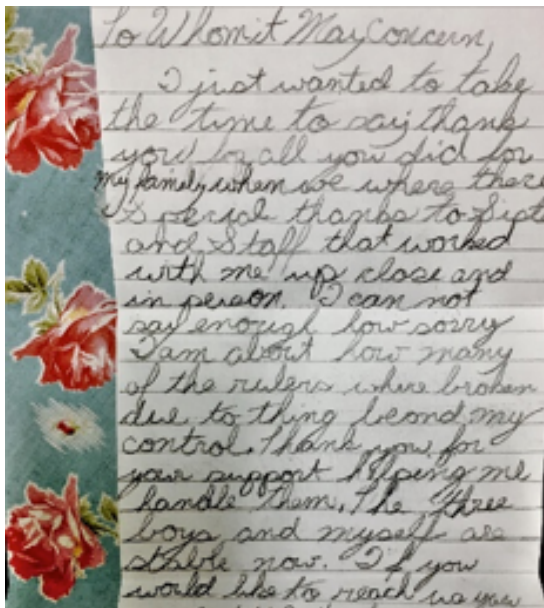 To Whom it May Concern,
I just wanted to take
the time to say thank
you for all you did for
my family when we where there
Special thanks to Siste
and Staff that worked
with me up close and
in person. I can not
say enough how sorry
I am about how many
of the rulers where broken
due to thing beond my
control. Thank you for
your support helping me
handle them. The three
boys and myself are
stable now. If you
would like to reach us you